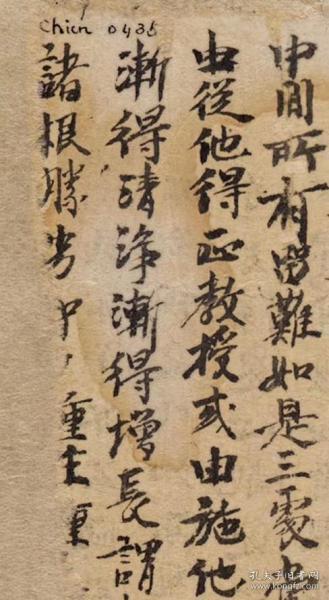 Chien 0435
中間所有留難如是三處
由從他得正教授或由施他
漸得清淨漸得增長謂
諸根勝劣中重
孔夫子旧书网
www.kongfz.com